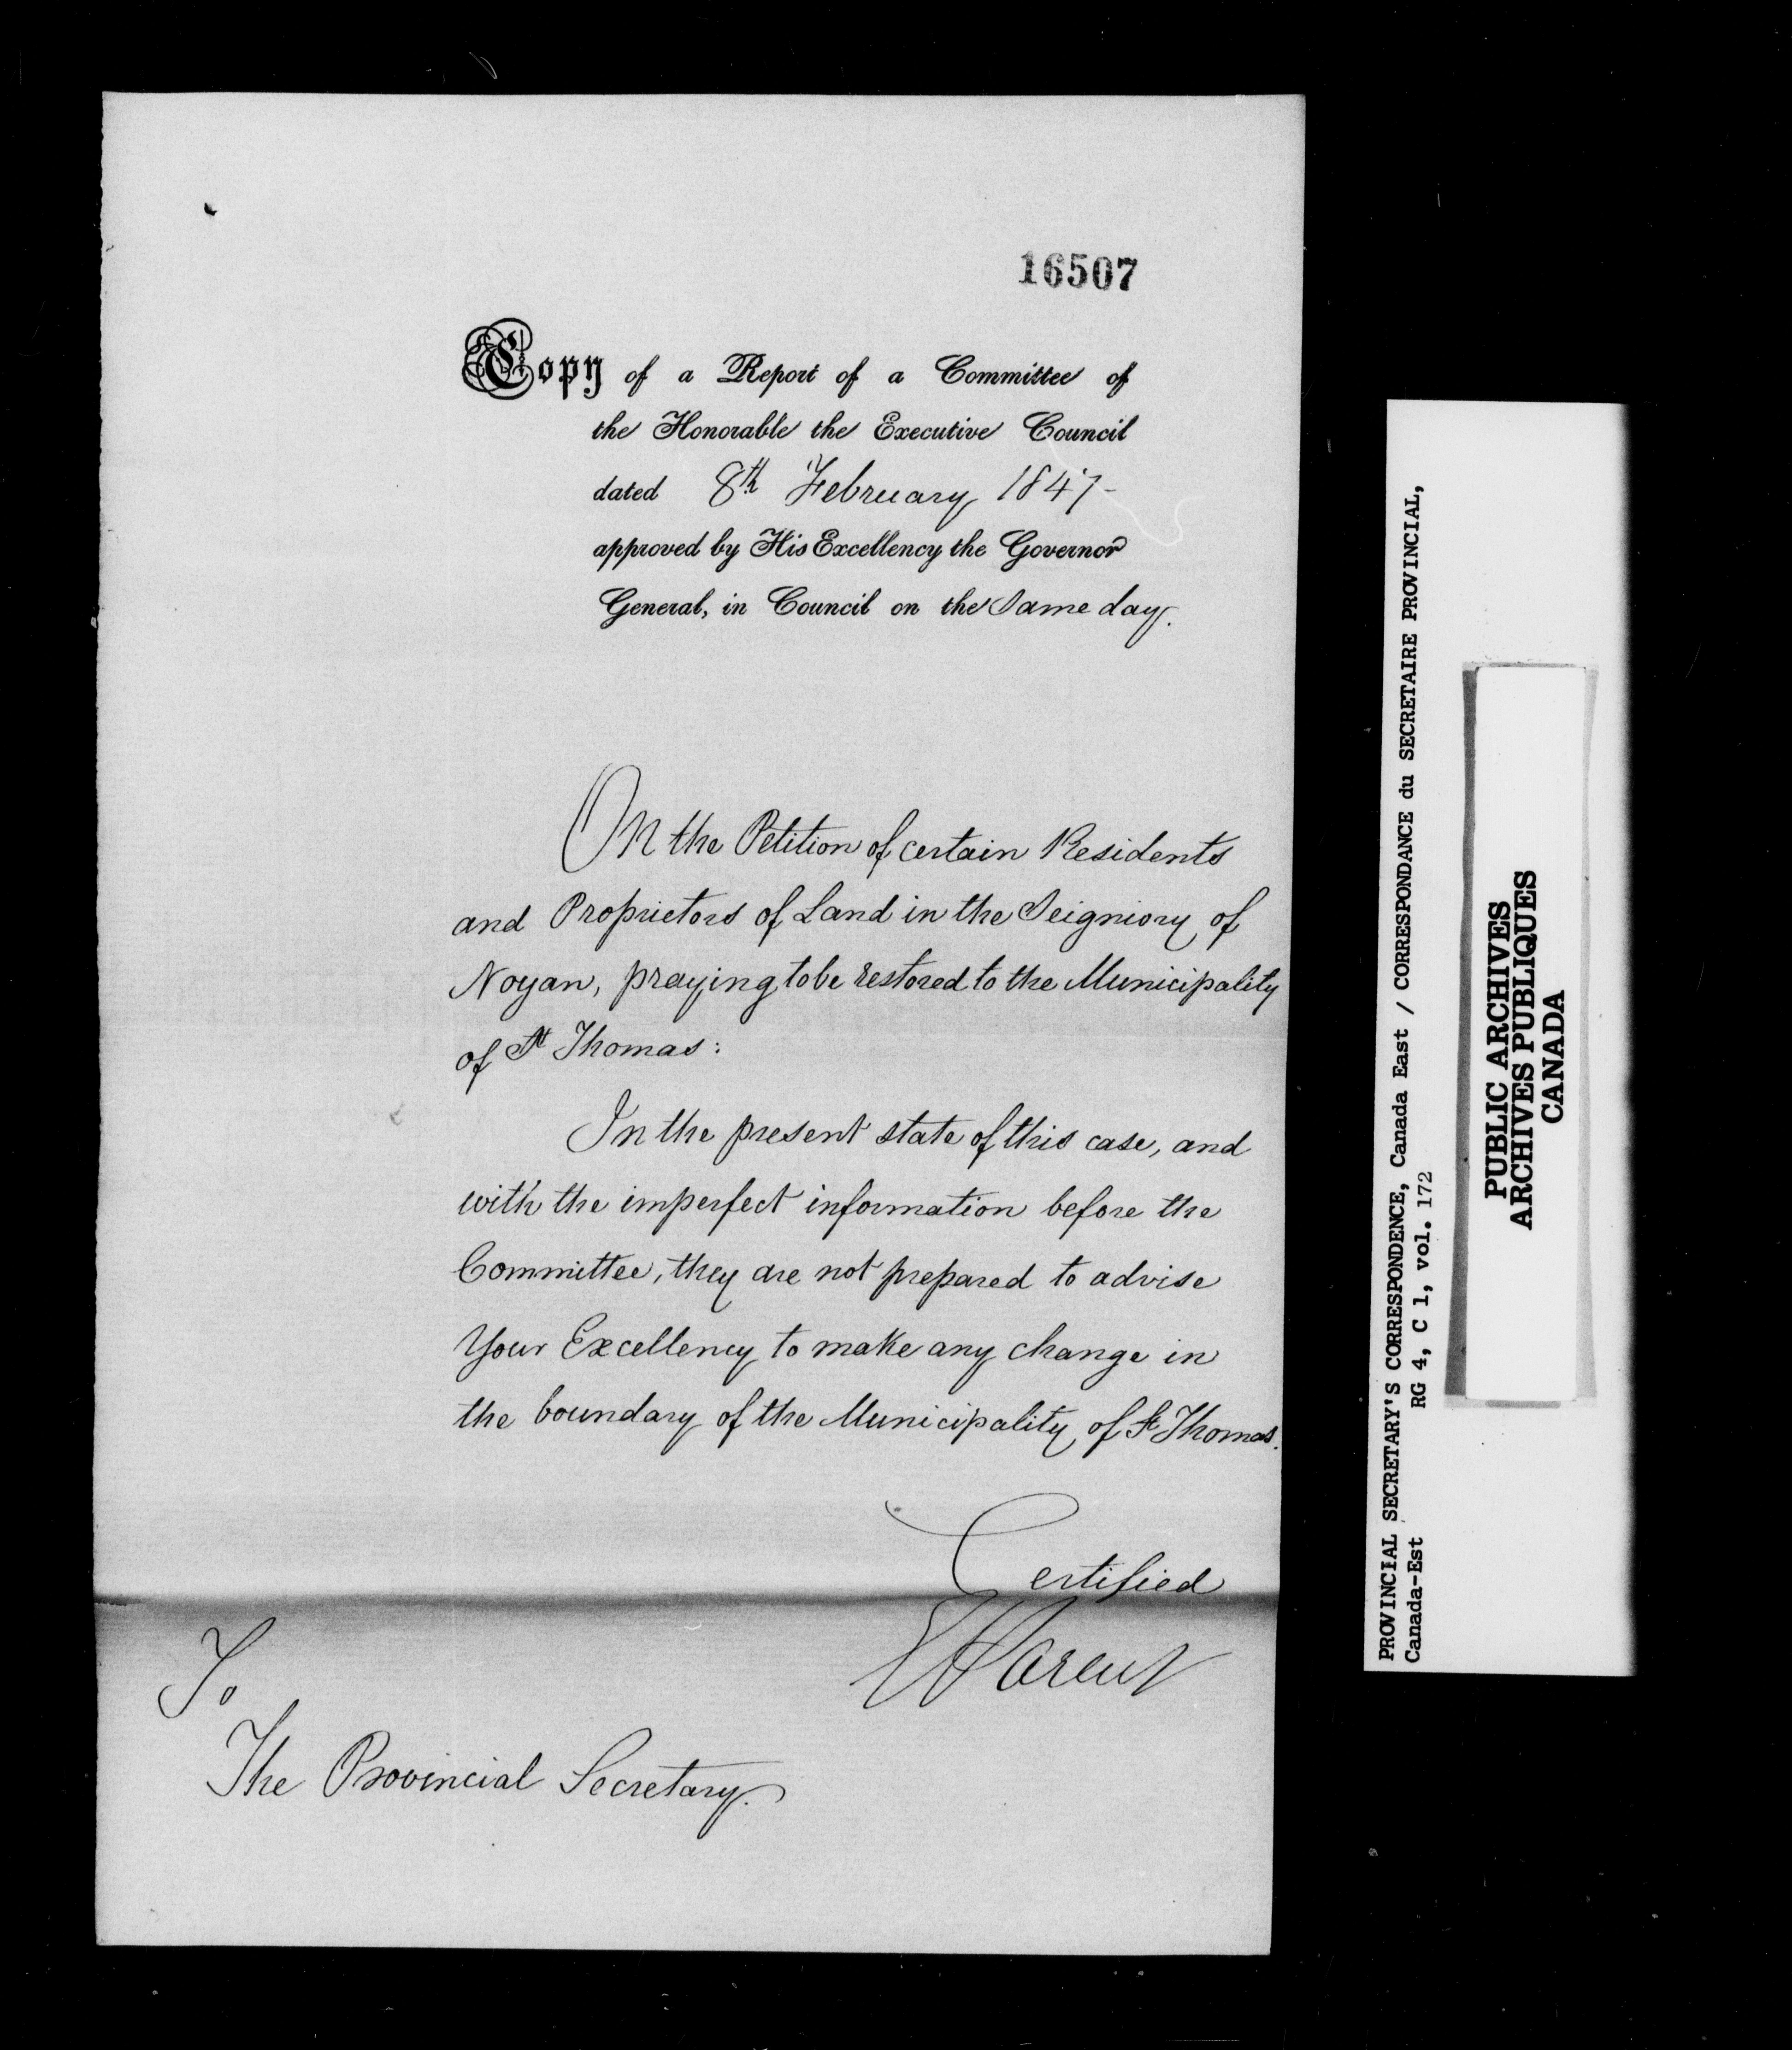 16507
Copy of a Report of a Committee of
the Honorable the Executive Council
dated 8th February 1847-
approved by His Excellency the Governor
General, in Council on the Same day.
On the Petition of certain Residents
and Proprietors of Land in the Seigniory of
Noyan, praying to be restored to the Municipality
of St Thomas:
In the present state of this case, and
with the imperfect information before the
Committee, they are not prepared to advise
Your Excellency to make any change in
the boundary of the Municipality of St Thomas.
Certified
E Parent
To
The Provincial Secretary.
PROVINCIAL SECRETARY'S CORRESPONDENCE, Canada East / CORRESPONDANCE du SECRETAIRE PROVINCIAL,
Canada-Est RG 4, C 1, vol. 172
PUBLIC ARCHIVES
ARCHIVES PUBLIQUES
CANADA